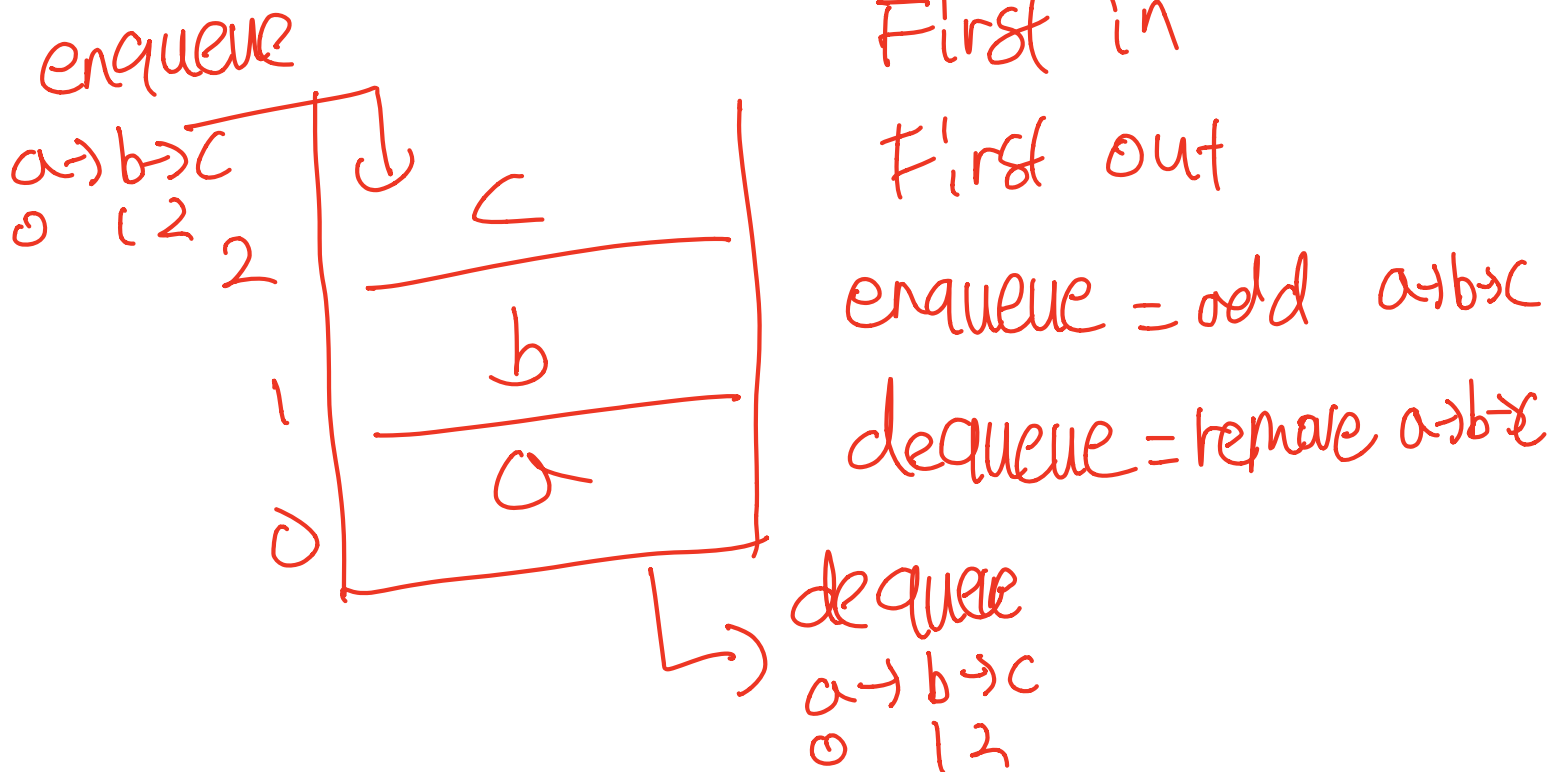 enqueue
a→b→c
0 1 2
First in
First out
2
c
1
b
0
a
enqueue = add a→b→c
dequeue = remove a→b→c
dequeue
a→b→c
0 1 2